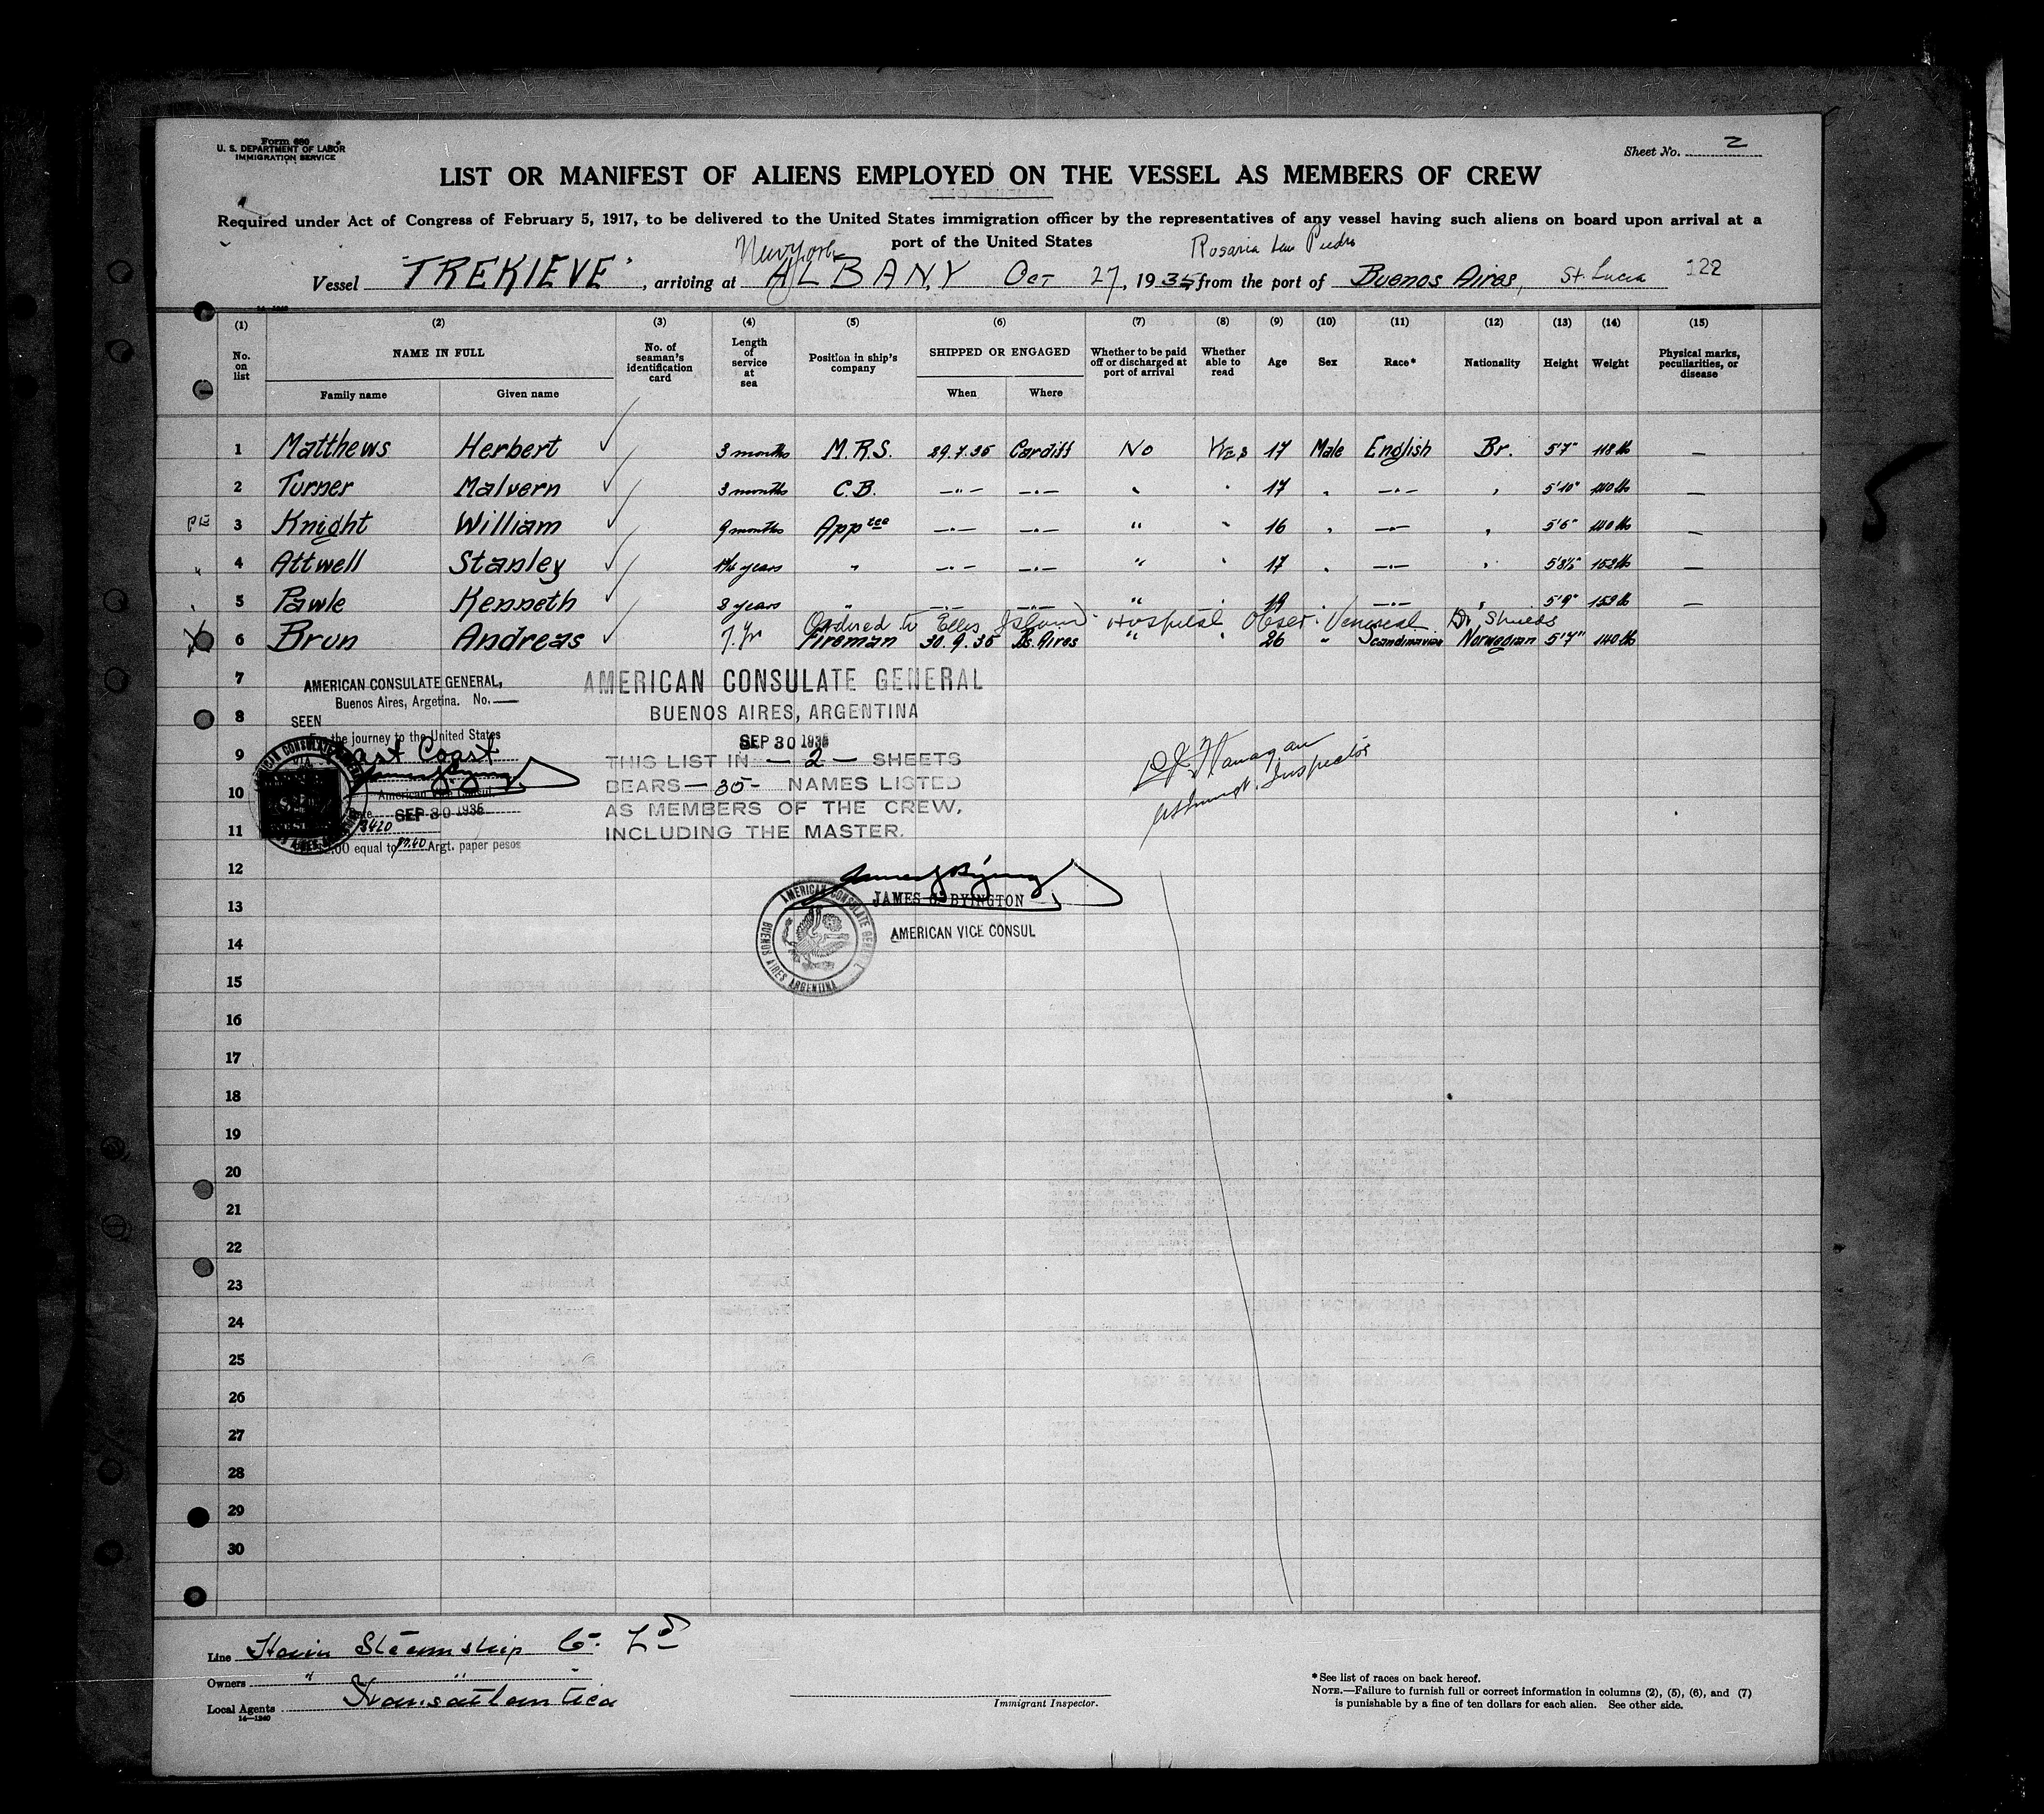 Form 680
U. S. DEPARTMENT OF LABOR
IMMIGRATION SERVICE
Sheet No. 2
LIST OR MANIFEST OF ALIENS EMPLOYED ON THE VESSEL AS MEMBERS OF CREW
Required under Act of Congress of February 5, 1917, to be delivered to the United States immigration officer by the representatives of any vessel having such aliens on board upon arrival at a
port of the United States
New York Rosaria San Pedro
Vessel "TREKIEVE", arriving at ALBANY Oct 27, 1935 from the port of Buenos Aires, St. Lucia 122
(1) (2) (3) (4) (5) (6) (7) (8) (9) (10) (11) (12) (13) (14) (15)
No. on list NAME IN FULL Family name Given name No. of seaman's identification card Length of service at sea Position in ship's company SHIPPED OR ENGAGED When Where Whether to be paid off or discharged at port of arrival Whether able to read Age Sex Race* Nationality Height Weight Physical marks, peculiarities, or disease
1 Matthews Herbert 3 months M.R.S. 29.7.35 Cardiff No Yes 17 Male English Br. 5'7" 118 lb —
2 Turner Malvern 3 months C.B. —"— —"— " " 17 " —"— " 5'10" 140 lb —
PE 3 Knight William 9 months Apptce —"— —"— " " 16 " —"— " 5'6" 140 lb —
" 4 Attwell Stanley 1¼ years " —"— —"— " " 17 " —"— " 5'8½" 152 lb —
" 5 Pawle Kenneth 3 years " —"— —"— " 19 " —"— " 5'9" 153 lb —
Ordered to Ellis Island Hospital Obser. Venereal Dr. Shields
6 Brun Andreas 7. Yr Fireman 30.9.35 Bs. Aires " 26 " Scandinavian Norwegian 5'7" 140 lb
7
8
9
10
11
12
13
14
15
16
17
18
19
20
21
22
23
24
25
26
27
28
29
30
AMERICAN CONSULATE GENERAL,
Buenos Aires, Argetina. No. —
SEEN
For the journey to the United States
VIA East Coast
American Vice Consul.
Date SEP 30 1935
3420
$2.00 equal to Argt. paper pesos
AMERICAN CONSULATE GENERAL
BUENOS AIRES, ARGENTINA
SEP 30 1935
THIS LIST IN — 2 — SHEETS
BEARS — 35 — NAMES LISTED
AS MEMBERS OF THE CREW,
INCLUDING THE MASTER.
JAMES G. BYINGTON
AMERICAN VICE CONSUL
AMERICAN CONSULATE GENERAL
BUENOS AIRES ARGENTINA
Flanagan
Inspector
5
Line Hain Steamship Co. Ld
Owners " " "
Local Agents Transatlantica
14—1240
Immigrant Inspector.
*See list of races on back hereof.
NOTE.—Failure to furnish full or correct information in columns (2), (5), (6), and (7)
is punishable by a fine of ten dollars for each alien. See other side.